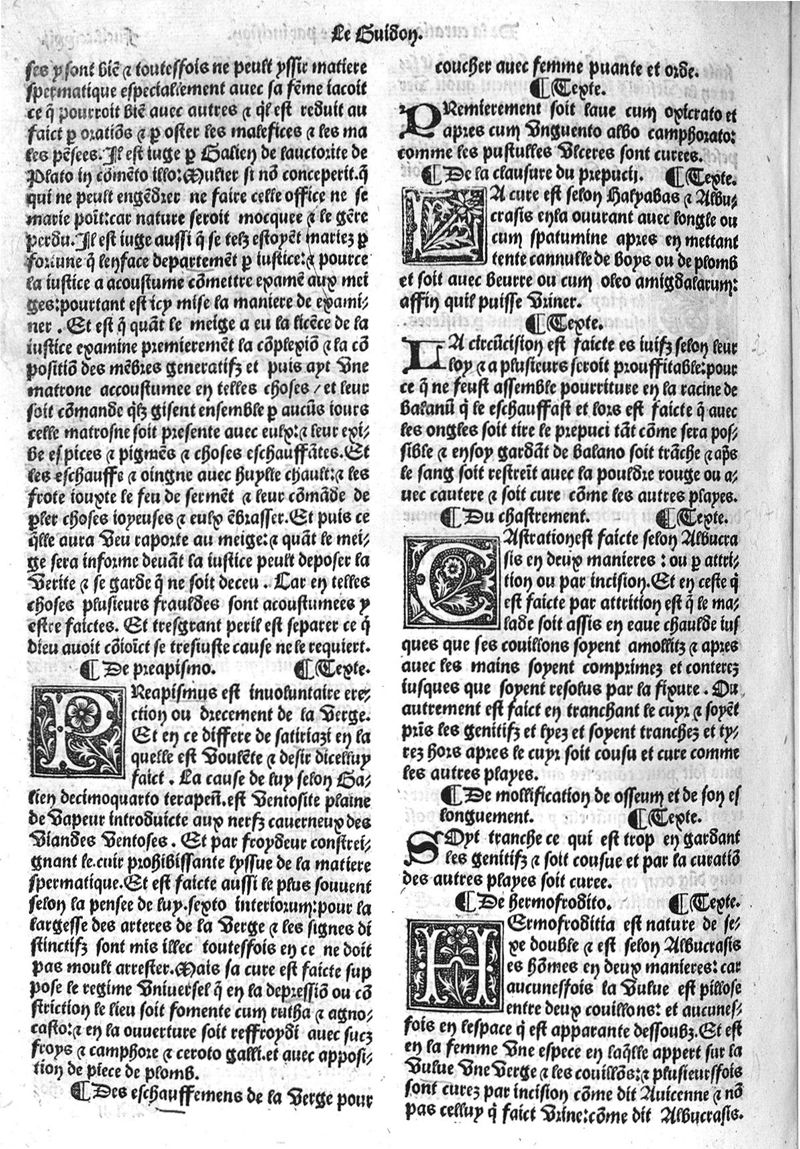 Le Guidon.
ses y sont biē ⁊ toutesfois ne peult yssir matiere
spermatique especiallement avec sa fēme iacoit
ce q̄ pourroit biē avec autres ⁊ q̄l est reduit au
faict p oratiōs ⁊ p oster les malefices ⁊ les ma
les pēsees. Il est iuge p Galien de lauctorite de
Plato in cōmēto illo: Mulier si nō conceperit. q̄
qui ne peult engēdrer ne faire celle office ne se
marie poīt: car nature seroit mocquee ⁊ le gēre
perdu. Il est iuge aussi q̄ se telz estoyēt mariez p
fortune q̄ len face departemēt p iustice: ⁊ pource
la iustice a acoustume cōmettre examē aux mei
ges: pourtant est icy mise la maniere de exami-
ner. Et est q̄ quāt le meige a eu la licēce de la
iustice examine premieremēt la cōplexiō ⁊ la cō
positiō des mēbres generatifz et puis ayt vne
matrone accoustumee en telles choses / et leur
soit cōmande q̄lz gisent ensemble p aucūs iours
celle matrosne soit presente avec eulx: ⁊ leur exi-
be espices ⁊ pigmēs ⁊ choses eschauffātes. Et
les eschauffe ⁊ oingne avec huylle chault: ⁊ les
frote iouxte le feu de sermēt ⁊ leur cōmāde de
pler choses ioyeuses ⁊ eulx ēbrasser. Et puis ce
q̄lle aura veu raporte au meige: ⁊ quāt le mei-
ge sera informe devāt la iustice peult deposer la
verite ⁊ se garde q̄ ne soit deceu. Car en telles
choses plusieurs frauldes sont acoustumees y
estre faictes. Et tresgrant peril est separer ce q̄
dieu avoit cōioīct se tresiuste cause ne le requiert.
¶ De preapismo. ¶ Texte.
PReapismus est involuntaire ere-
ction ou drecement de la verge.
Et en ce differe de satiriazi en la
quelle est voulēte ⁊ desir dicelluy
faict. La cause de luy selon Ga-
lien decimoquarto terapeñ. est ventosite plaine
de vapeur introduicte aux nerfz caverneux des
viandes ventoses. Et par froydeur constrei-
gnant le cuir prohibissante lyssue de la matiere
spermatique. Et est faicte aussi le plus souvent
selon la pensee de luy. sexto interiorum: pour la
largesse des arteres de la verge ⁊ les signes di
stinctifz sont mis illec toutesfois en ce ne doit
pas moult arrester. Mais sa cure est faicte sup
pose le regime vniversel q̄ en la depressiō ou cō
striction le lieu soit fomente cum rutha ⁊ agno-
casto: ⁊ en la ouverture soit reffroydi avec sucz
froys ⁊ camphore ⁊ ceroto galli. et avec apposi-
tion de piece de plomb.
¶ Des eschauffemens de la verge pour
coucher avec femme puante et orde.
¶ Texte.
PRemierement soit lave cum oxicrato et
apres cum vnguento albo camphorato:
comme les pustulles vlceres sont curees.
¶ De la clausure du prepucij. ¶ Texte.
LA cure est selon Halyabas ⁊ Albu-
crasis en la ouvrant avec longle ou
cum spatumine apres en mettant
tente cannulle de boys ou de plomb
et soit avec beurre ou cum oleo amigdalarum:
affin quil puisse vriner.
¶ Texte.
LA circūcision est faicte es iuifz selon leur
loy ⁊ a plusieurs seroit prouffitable: pour
ce q̄ ne feust assemble pourriture en la racine de
balanū q̄ le eschauffast et lors est faicte q̄ avec
les ongles soit tire le prepuci tāt cōme sera pos-
sible ⁊ en soy gardāt de balano soit trāche ⁊ aps̄
le sang soit restreīt avec la pouldre rouge ou a-
vec cautere ⁊ soit cure cōme les autres playes.
¶ Du chastrement. ¶ Texte.
CAstration est faicte selon Albucra
sis en deux manieres: ou p attri-
tion ou par incision. Et en ceste q̄
est faicte par attrition est q̄ le ma-
lade soit assis en eaue chaulde ius
ques que ses couillons soyent amollitz ⁊ apres
avec les mains soyent comprimez et conterez
iusques que soyent resolus par la fixure. Ou
autrement est faict en tranchant le cuyr ⁊ soyēt
prīs les genitifz et lyez et soyent tranchez et ty-
rez hors apres le cuyr soit cousu et cure comme
les autres playes.
¶ De mollification de osseum et de son es
longuement. ¶ Texte.
SOyt tranche ce qui est trop en gardant
les genitifz ⁊ soit cousue et par la curatiō
des autres playes soit curee.
¶ De hermofrodito. ¶ Texte.
HErmofroditia est nature de se-
xe double ⁊ est selon Albucrasis
es hōmes en deux manieres: car
aucunesfois la vulve est pillose
entre deux couillons: et aucunes-
fois en lespace q̄ est apparante dessoubz. Et est
en la femme vne espece en laq̄lle appert sur la
vulve vne verge ⁊ les couillōs: ⁊ plusieurs fois
sont curez par incision cōme dit Avicenne ⁊ nō
pas celluy q̄ faict vrine: cōme dit Albucrasis.